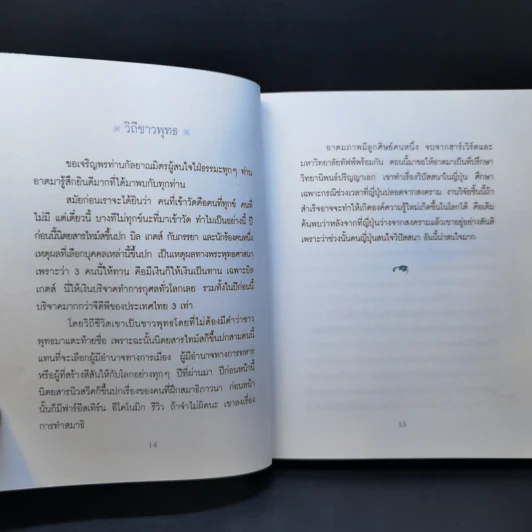 วิถีชาวพุทธ
ขอเจริญพรท่านกัลยาณมิตรผู้สนใจใฝ่ธรรมะทุกๆ ท่าน
อาตมารู้สึกยินดีมากที่ได้มาพบกับทุกท่าน
สมัยก่อนเราจะได้ยินว่า คนที่เข้าวัดคือคนที่ทุกข์ คนที่
ไม่มี แต่เดี๋ยวนี้ บางทีไม่ทุกข์นะที่มาเข้าวัด ทำไมเป็นอย่างนี้ ปี
ก่อนนี้นิตยสารไทม์สขึ้นปก บิล เกตส์ กับภรรยา และนักร้องคนหนึ่ง
เหตุผลที่เลือกบุคคลเหล่านี้ขึ้นปก เป็นเหตุผลทางพุทธศาสนา
เพราะว่า 3 คนนี้ให้ทาน คือมีเงินก็ให้เงินเป็นทาน เฉพาะบิล
เกตส์ นี่ให้เงินบริจาคทำการกุศลทั่วโลกเลย รวมทั้งในปีก่อนนี้
บริจาคมากกว่าจีดีพีของประเทศไทย 3 เท่า
โดยวิถีชีวิตเขาเป็นชาวพุทธโดยที่ไม่ต้องมีคำว่าชาว
พุทธมาแตะท้ายชื่อ เพราะฉะนั้นนิตยสารไทม์สก็ขึ้นปกสามคนนี้
แทนที่จะเลือกผู้มีอำนาจทางการเมือง ผู้มีอำนาจทางการทหาร
หรือผู้ที่สร้างสีสันให้กับโลกอย่างทุกๆ ปี ที่ผ่านมา ปีก่อนหน้านี้
นิตยสารนิวสวีคก็ขึ้นปกเรื่องของคนที่ฝึกสมาธิภาวนา ก่อนหน้า
นั้นก็มีฟาร์อีสเทิร์น อีโคโนมิก รีวิว ถ้าจำไม่ผิดนะ เขาลงเรื่อง
การทำสมาธิ
14
อาตมภาพมีลูกศิษย์คนหนึ่ง จบจากฮาร์เวิร์ดและ
มหาวิทยาลัยทัฟท์พร้อมกัน ตอนนี้มาขอให้อาตมาเป็นที่ปรึกษา
วิทยานิพนธ์ปริญญาเอก เขาทำเรื่องวิปัสสนาในญี่ปุ่น ศึกษา
เฉพาะกรณีช่วงเวลาที่ญี่ปุ่นปลอดจากสงคราม งานวิจัยชิ้นนี้ถ้า
สำเร็จอาจจะทำให้เกิดองค์ความรู้ใหม่เกิดขึ้นในโลกได้ คือเดิม
ค้นพบว่าหลังจากที่ญี่ปุ่นว่างจากสงครามแล้วเขาอยู่อย่างสันติ
เพราะว่าช่วงนั้นคนญี่ปุ่นสนใจวิปัสสนา อันนี้น่าสนใจมาก
15